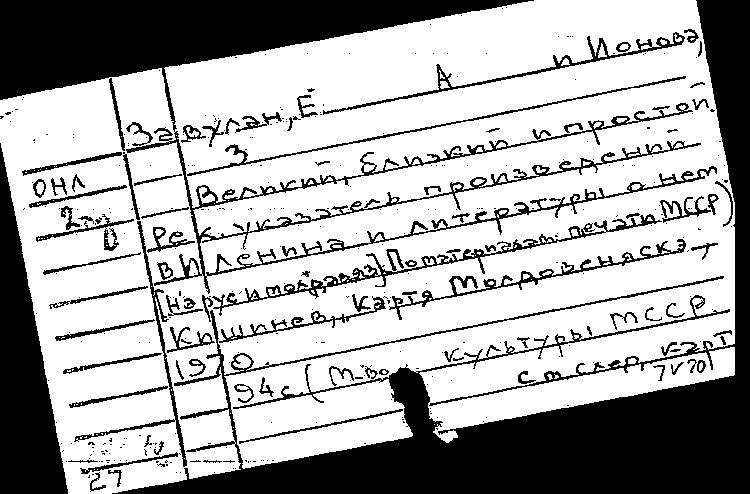 Завулан, Е. А и Ионова,
З
Великий, близкий и простой.
ОНЛ
Рек. указатель произведений
2
В.И. Ленина и литературы о нем
[На рус и молд. яз]. По материалам печати МССР)
Кишинев, „Картя Молдовеняскэ",
1970.
94 с. (М-во культуры МССР.
См след. карт
7 V 70
27